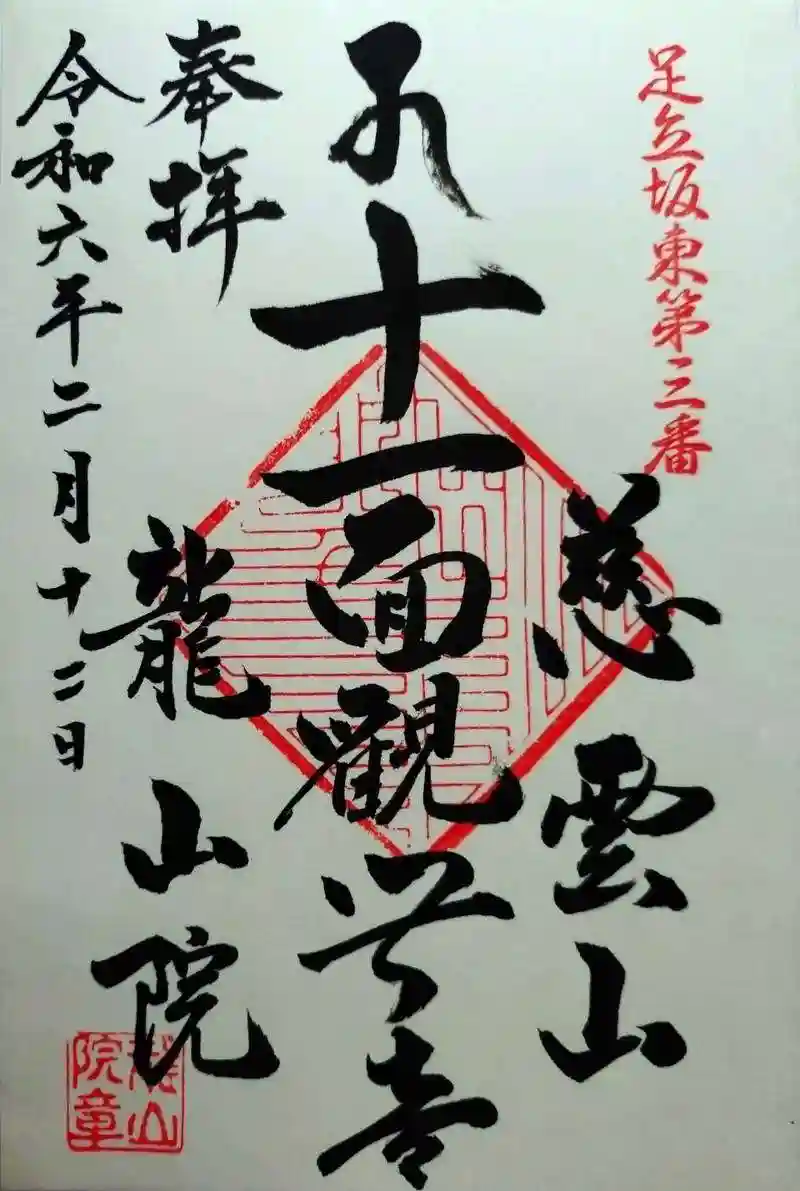 足立坂東第三番
慈雲山
十一面觀世音
奉拝
龍山院
令和六年二月十二日
龍山
院章